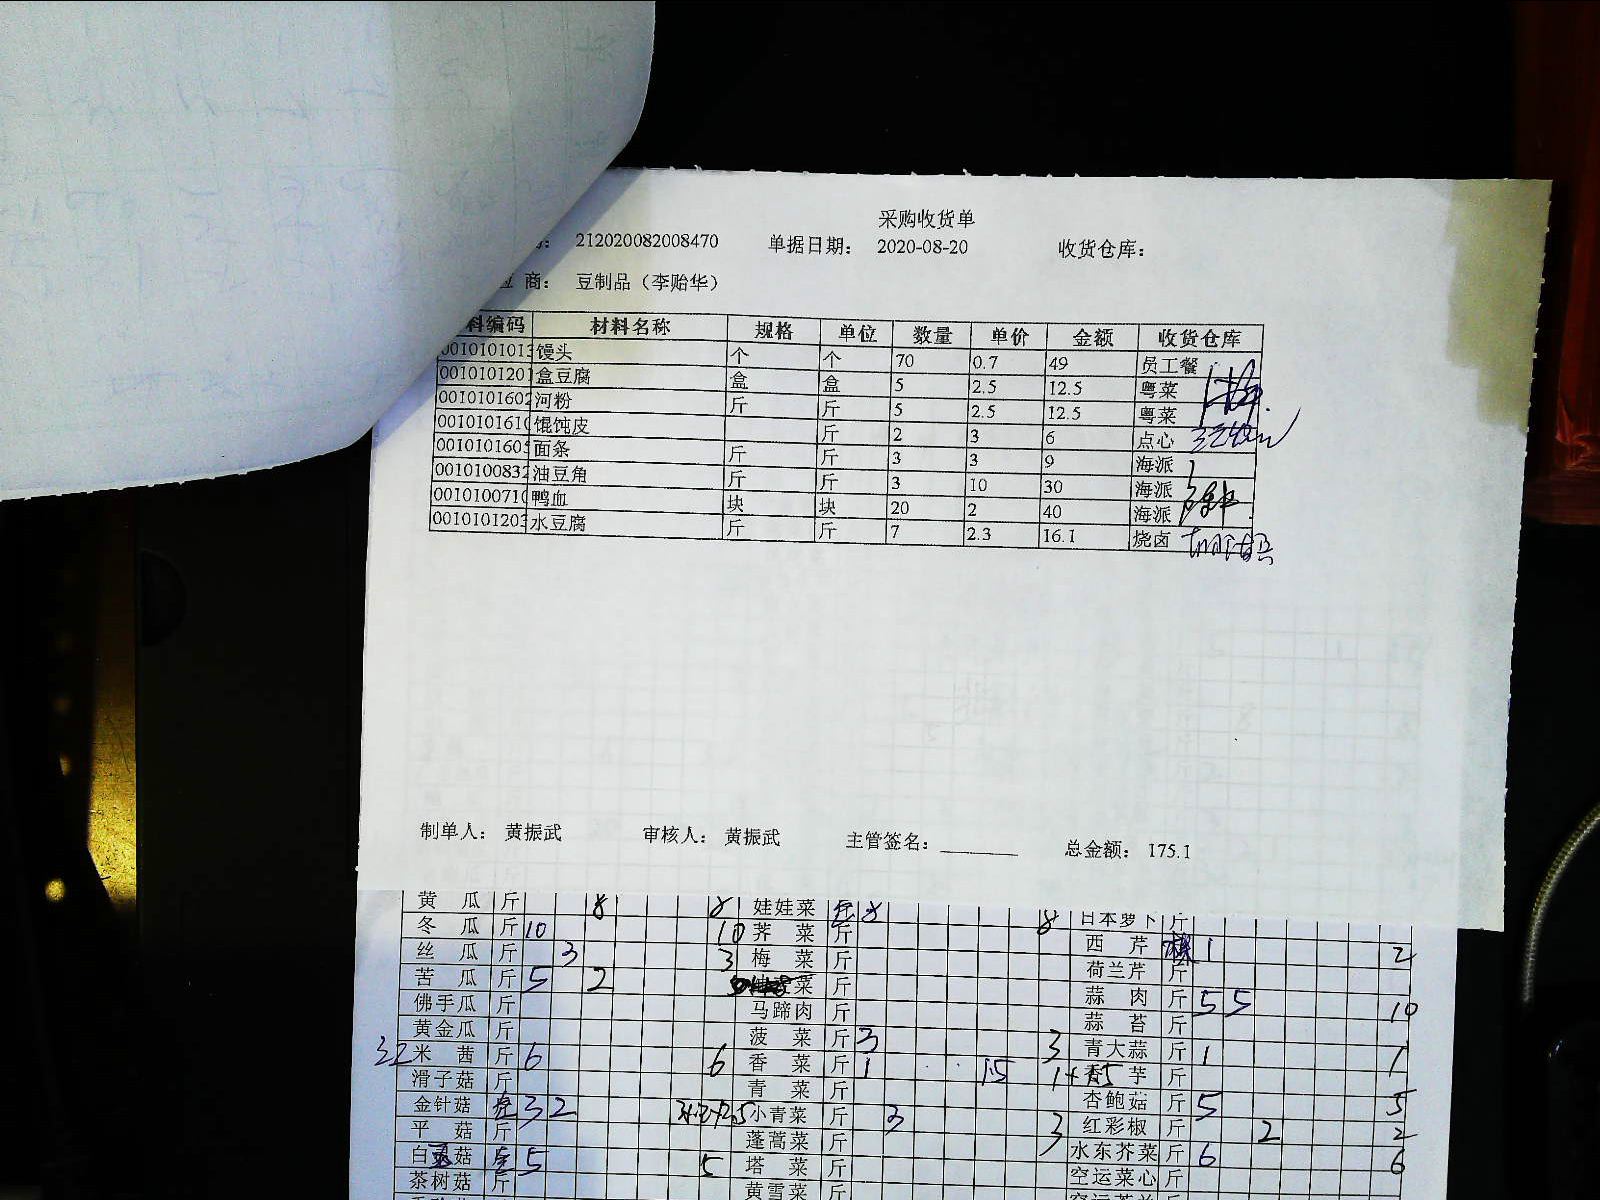 采购收货单
212020082008470 单据日期： 2020-08-20 收货仓库：
商： 豆制品（李贻华）
料编码 材料名称 规格 单位 数量 单价 金额 收货仓库
馒头 个 个 70 0.7 49 员工餐
盒豆腐 盒 盒 5 2.5 12.5 粤菜
河粉 斤 斤 5 2.5 12.5 粤菜
馄饨皮 斤 2 3 6 点心
面条 斤 斤 3 3 9 海派
油豆角 斤 斤 3 10 30 海派
鸭血 块 块 20 2 40 海派
水豆腐 斤 斤 7 2.3 16.1 烧卤
制单人： 黄振武 审核人： 黄振武 主管签名： 总金额： 175.1
黄瓜 斤 8 8 娃娃菜 8 日本萝卜 斤
冬瓜 斤 10 10 荠菜 斤 西芹 1 2
丝瓜 斤 3 3 梅菜 斤 荷兰芹 斤
苦瓜 斤 5 2 菜 斤 蒜肉 斤 5 5 10
佛手瓜 斤 马蹄肉 斤 蒜苔 斤
黄金瓜 斤 菠菜 斤 3 3 青大蒜 斤 1 1
米茜 斤 6 6 香菜 斤 1 1.5 芋 斤
滑子菇 斤 青菜 斤 杏鲍菇 斤 5 5
金针菇 3 2 小青菜 斤 3 3 红彩椒 斤 2 2
平菇 斤 蓬蒿菜 斤 水东芥菜 斤 6 6
白菇 5 5 塔菜 斤 空运菜心 斤
茶树菇 斤 黄雪菜 斤